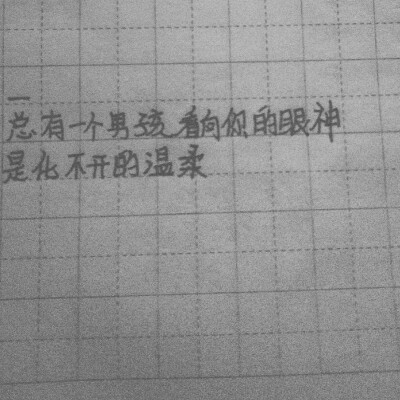 一
总有一个男孩看向你的眼神
是化不开的温柔